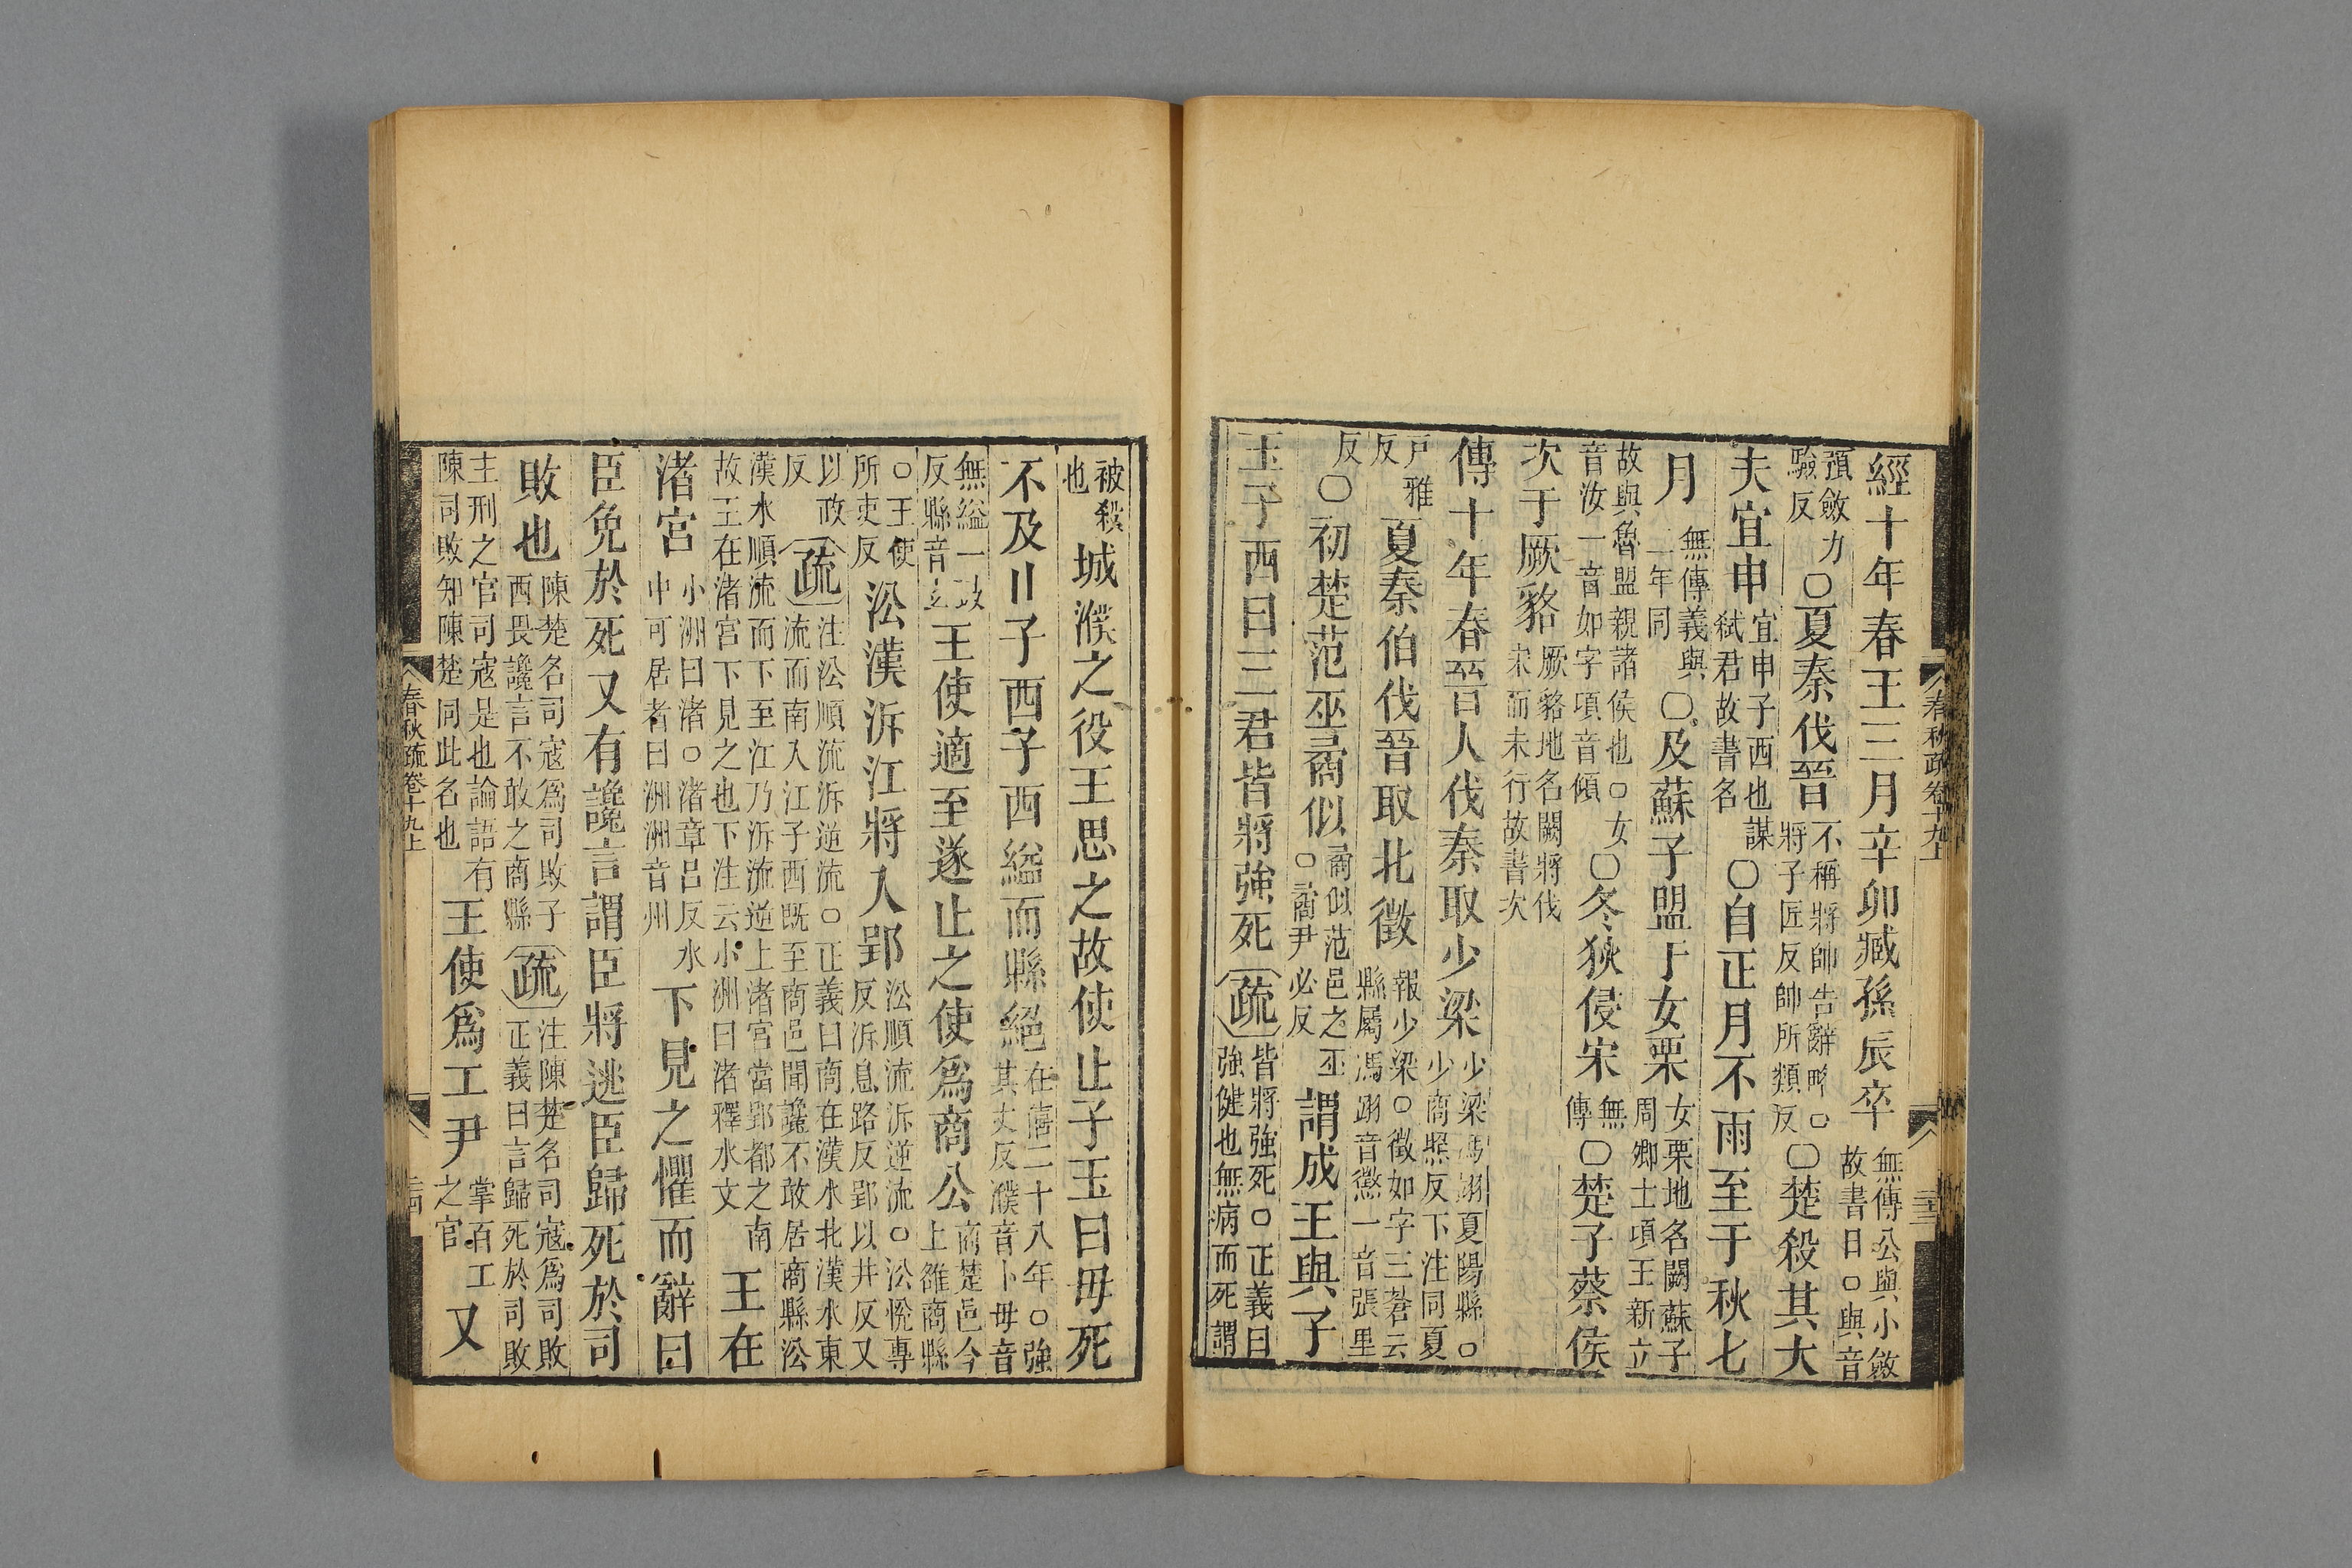 經十年春王三月辛卯臧孫辰卒無傳公與小斂故書日○與音
預斂力驗反○夏秦伐晉不稱將帥告辭略○將子匠反帥所類反○楚殺其大
夫宜申宜申子西也謀弒君故書名○自正月不雨至于秋七
月無傳義與二年同○及蘇子盟于女栗女栗地名闕蘇子周卿士頃王新立
故與魯盟親諸侯也○女音汝一音如字頃音傾○冬狄侵宋無傳○楚子蔡侯
次于厥貉厥貉地名闕將伐宋而未行故書次
傳十年春晉人伐秦取少梁少梁馮翊夏陽縣○少商照反下注同夏
戶雅反夏秦伯伐晉取北徵報少梁○徵如字三蒼云縣屬馮翊音懲一音張里
反○初楚范巫矞似矞似范邑之巫○矞尹必反謂成王與子
玉子西曰三君皆將強死疏皆將強死○正義曰強健也無病而死謂
春秋疏卷十九上 三十三
被殺也城濮之役王思之故使止子玉曰毋死
不及止子西子西縊而縣絕在僖二十八年○強其丈反濮音卜毋音
無縊一豉反縣音玄王使適至遂止之使爲商公商楚邑今上雒商縣
○王使所吏反沿漢泝江將入郢沿順流泝逆流○沿悅專反泝息路反郢以井反又
以政反疏注沿順流泝逆流○正義曰商在漢水北漢水東流而南入江子西既至商邑聞讒不敢居商縣沿
漢水順流而下至江乃泝流逆上渚宮當郢都之南故王在渚宮下見之也下注云小洲曰渚釋水文王在
渚宮小洲曰渚○渚章呂反水中可居者曰洲洲音州下見之懼而辭曰
臣免於死又有讒言謂臣將逃臣歸死於司
敗也陳楚名司寇爲司敗子西畏讒言不敢之商縣疏注陳楚名司寇爲司敗正義曰言歸死於司敗
主刑之官司寇是也論語有陳司敗知陳楚同此名也王使爲工尹掌百工之官又
春秋疏卷十九上